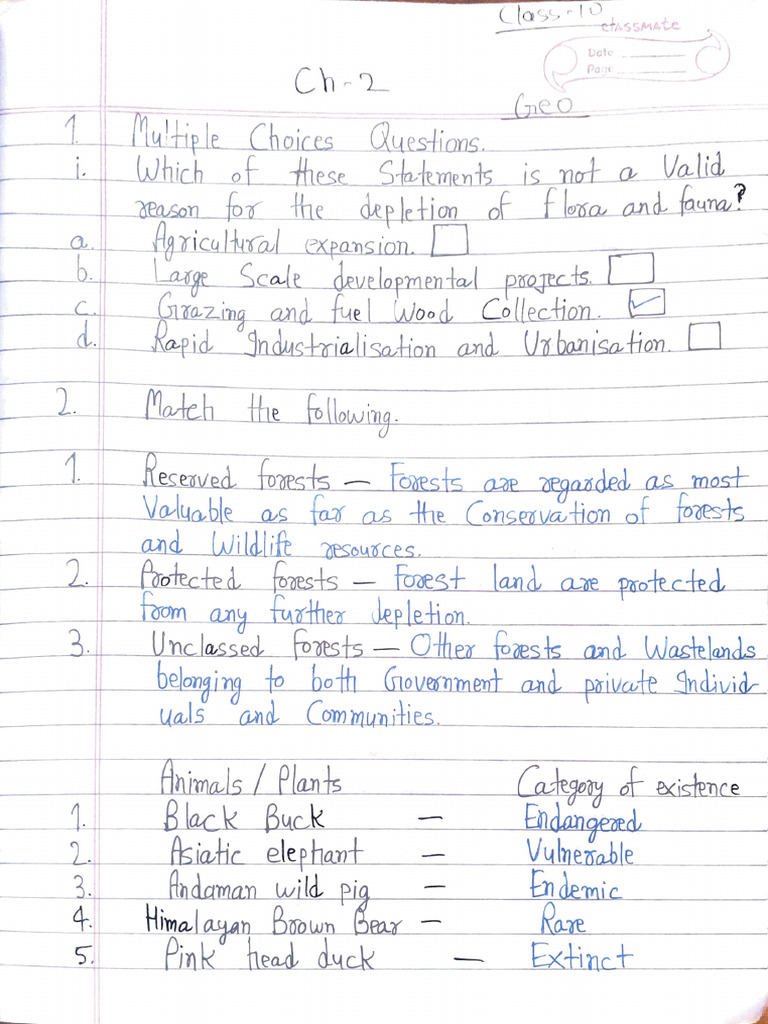 Class-10
classmate
Date
Page
Ch-2
Geo
1. Multiple Choices Questions.
i. Which of these Statements is not a Valid
reason for the depletion of flora and fauna?
a. Agricultural expansion.
b. Large Scale developmental projects.
c. Grazing and fuel Wood Collection. ✓
d. Rapid Industrialisation and Urbanisation.
2. Match the following.
1. Reserved forests — Forests are regarded as most
Valuable as far as the Conservation of forests
and Wildlife resources.
2. Protected forests — Forest land are protected
from any further depletion.
3. Unclassed forests — Other forests and Wastelands
belonging to both Government and private Individ-
uals and Communities.
Animals / Plants Category of existence
1. Black Buck — Endangered
2. Asiatic elephant — Vulnerable
3. Andaman wild pig — Endemic
4. Himalayan Brown Bear — Rare
5. Pink head duck — Extinct